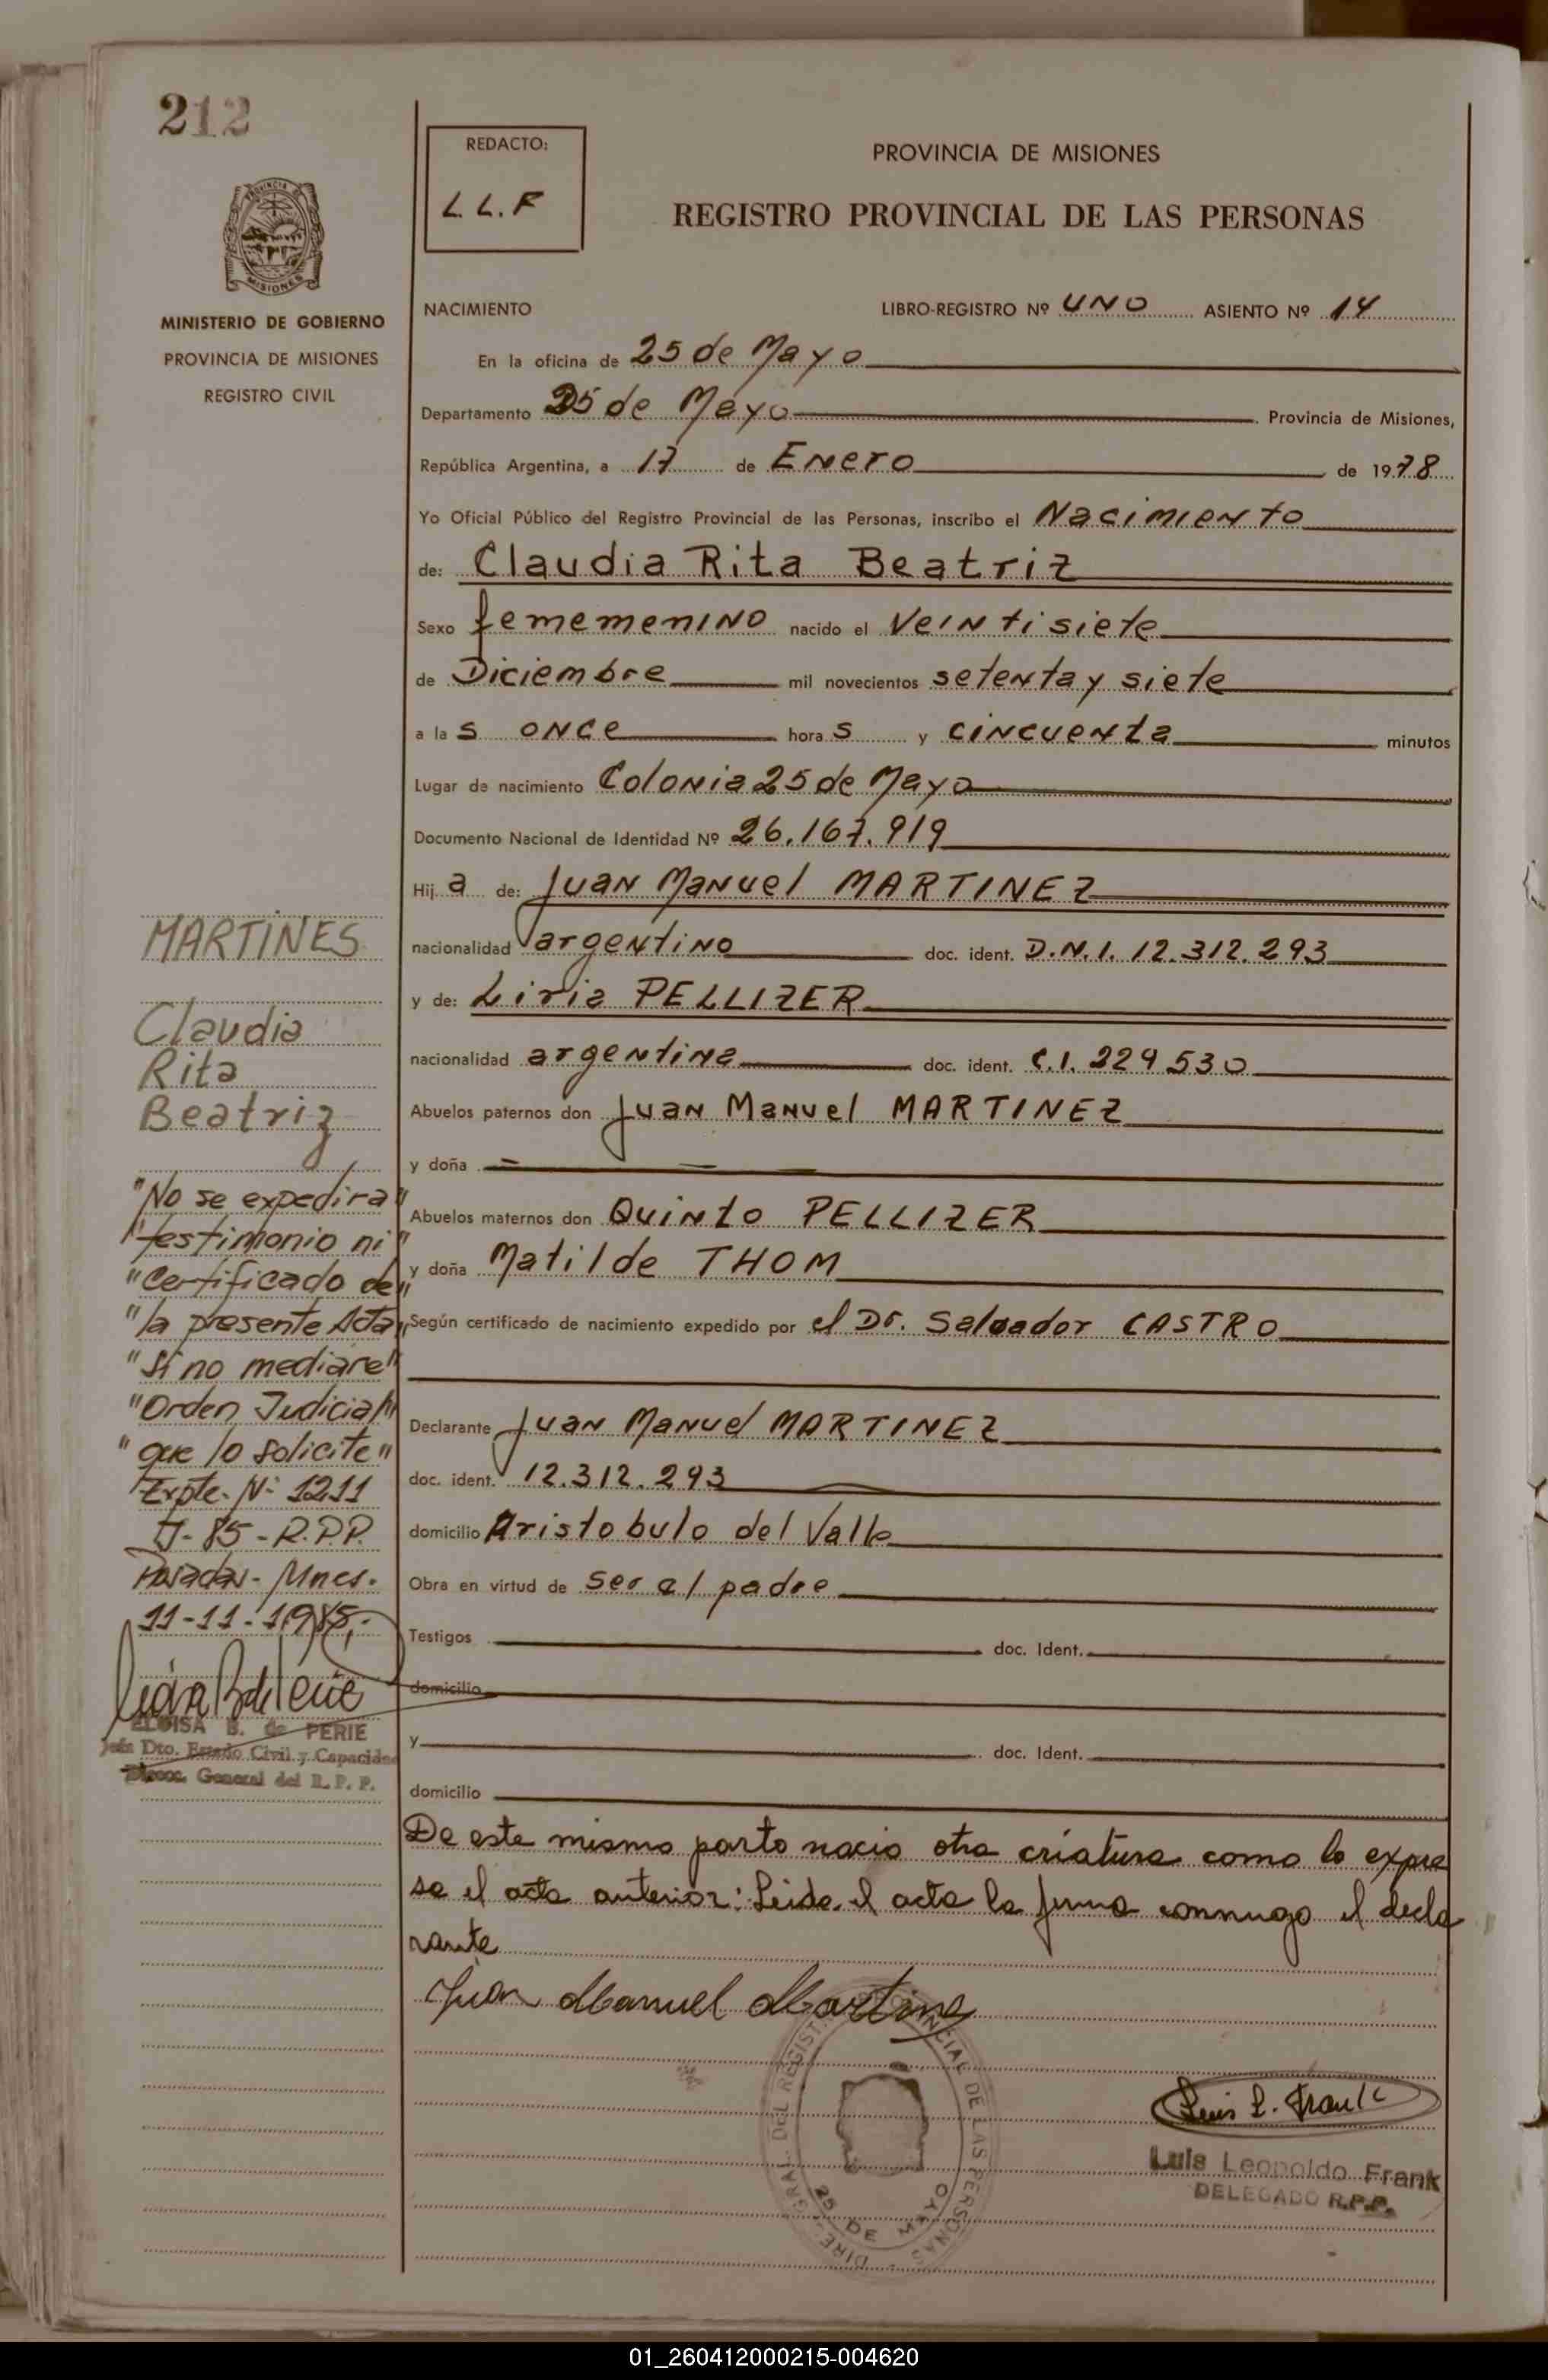 212
REDACTO:
L. L. F
PROVINCIA DE MISIONES
REGISTRO PROVINCIAL DE LAS PERSONAS
PROVINCIA DE
MISIONES
MINISTERIO DE GOBIERNO
PROVINCIA DE MISIONES
REGISTRO CIVIL
NACIMIENTO LIBRO-REGISTRO Nº UNO ASIENTO Nº 14
En la oficina de 25 de Mayo
Departamento 25 de Mayo Provincia de Misiones,
República Argentina, a 17 de Enero de 1978
Yo Oficial Público del Registro Provincial de las Personas, inscribo el Nacimiento
de: Claudia Rita Beatriz
Sexo femememenino nacido el Veintisiete
de Diciembre mil novecientos setenta y siete
a las once horas y cincuenta minutos
Lugar de nacimiento Colonia 25 de Mayo
Documento Nacional de Identidad Nº 26.167.919
Hija de: Juan Manuel MARTINEZ
nacionalidad argentino doc. ident. D.N.I. 12.312.293
y de: Liria PELLIZER
nacionalidad argentina doc. ident. C.I. 229.530
Abuelos paternos don Juan Manuel MARTINEZ
y doña
Abuelos maternos don Quinto PELLIZER
y doña Matilde THOM
Según certificado de nacimiento expedido por el Dr. Salvador CASTRO
Declarante Juan Manuel MARTINEZ
doc. ident. 12.312.293
domicilio Aristobulo del Valle
Obra en virtud de ser el padre
Testigos doc. Ident.
domicilio
y doc. Ident.
domicilio
De este mismo parto nacio otra criatura como lo expre
sa el acta anterior: Leida el acta la firma conmigo el decla
rante
Juan Manuel Martinez
MARTINES
Claudia
Rita
Beatriz
"No se expedira"
"testimonio ni"
"Certificado de"
"la presente Acta"
"Si no mediare"
"Orden Judicial"
"que lo solicite"
Expte. Nº 1211
J-85-R.P.P.
Posadas-Mnes.
11-11-1985.
ELOISA B. de PERIE
Jefa Dto. Estado Civil y Capacidad
Direcc. General del R. P. P.
DIRE. GRAL. DEL REGIST. PROVINCIAL DE LAS PERSONAS
25 DE MAYO
Luis L. Frank
Luis Leopoldo Frank
DELEGADO R.P.P.
01_260412000215-004620